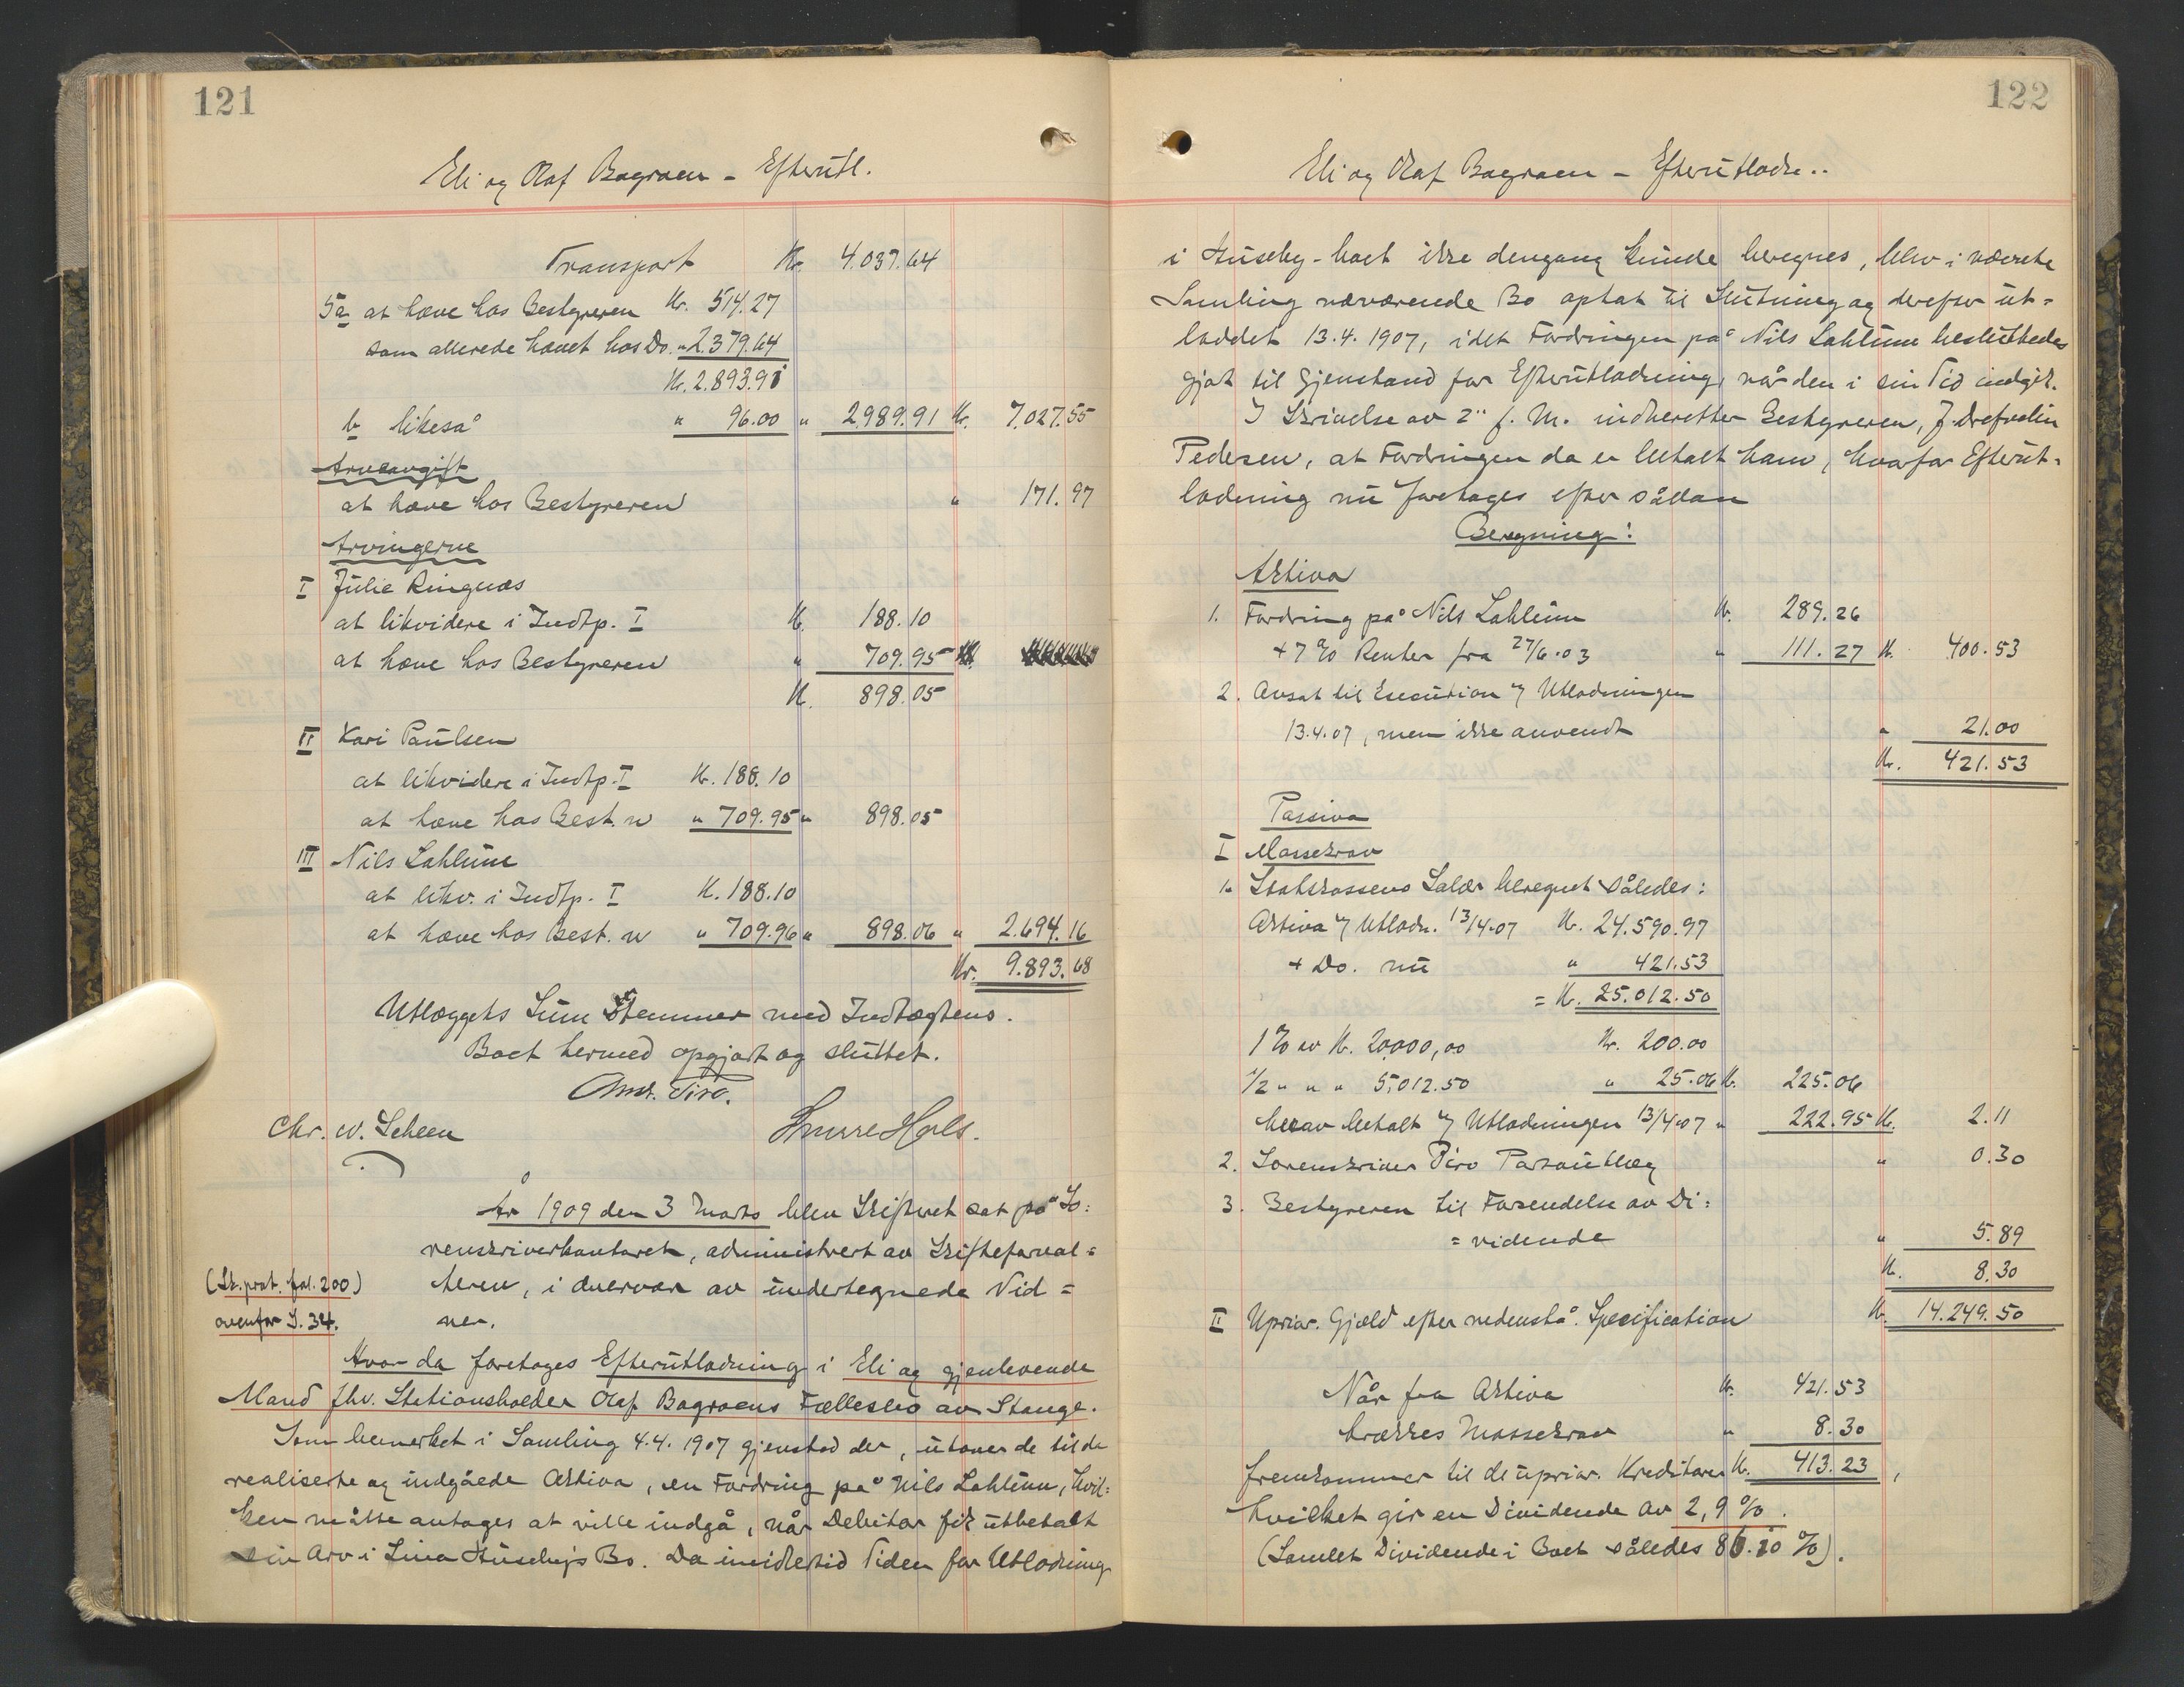 121
Eli og Olaf Bagroen - Efterutl.
Transport Kr. 4.037.64
5a at hæve hos Bestyreren Kr. 514.27
som allerede hævet hos Do. " 2.379.64
Kr. 2.893.91
b likeså " 96.00 " 2989.91 Kr. 7.027.55
Arveavgift
at hæve hos Bestyreren " 171.97
Arvingerne
I Julie Ringnæs
at likvidere i Indtp. I K. 188.10
at hæve hos Bestyreren " 709.95
K. 898.05
II Kari Paulsen
at likvidere i Indtp. I Kr. 188.10
at hæve hos Best.n " 709.95 " 898.05
III Nils Lahlum
at likv. i Indtp. I K. 188.10
at hæve hos Best.n " 709.96 " 898.06 " 2.694.16
Kr. 9.893.68
Utlæggets Sum stemmer med Indtægtens.
Boet hermed opgjort og sluttet.
Chr. W. Scheen
År 1909 den 3 Marts blev Skifteret sat på So=
renskriverkontoret, administrert av Skifteforval=
teren, i overvær av undertegnede Vid=
ner.
(Sk.prot. fol. 200)
ovenfor S. 34.
Hvor da foretoges Efterutlodning i Eli og gjenlevende
Mand fhv. Stationsholder Olaf Bagroens Fællesbo av Stange.
Som bemerket i Samling 4.4. 1907 gjenstod der, utover de til da
realiserte og indgåede Aktiva, en Fordring på Nils Lahlum, hvil=
ken måtte antages at ville indgå, når Debitor fik utbetalt
sin Arv i Lina Husebys Bo. Da imidlertid Tiden for Utlodning
122
Eli og Olaf Bagroen - Efterutlodn..
i Huseby-boet ikke dengang kunde beregnes, blev i nævnte
Samling nærværende Bo optat til Slutning og derefter ut=
loddet 13.4. 1907, idet Fordringen på Nils Lahlum besluttedes
gjort til Gjenstand for Efterutlodning, når den i sin Tid indgik.
I Skrivelse av 2" f. M. indberetter Bestyreren,
Pedersen, at Fordringen da er betalt ham, hvorfor Efterut=
lodning nu foretages efter sådan
Beregning:
Aktiva
1. Fordring på Nils Lahlum Kr. 289.26
+ 7 % Renter fra 27/6.03 " 111.27 K. 400.53
2. Avsat til Execution v/ Utlodningen
13.4.07, men ikke anvendt " 21.00
Kr. 421.53
Passiva
I Massekrav
1. Statskassens Salær beregnet således:
Aktiva v/ Utlodn. 13/4.07 K. 24.590.97
+ Do. nu " 421.53
= K. 25.012.50
1 % av K. 20000,00 Kr. 200.00
1/2 " " " 5.012.50 " 25.06 K. 225.06
herav betalt v/ Utlodningen 13/4.07 " 222.95 K. 2.11
2. Sorenskriver Tiro Portoutlæg " 0.30
3. Bestyreren til Forsendelse av Di=
=vidende " 5.89
K. 8.30
II Uprior. Gjæld efter nedenstå. Specification K. 14.249.50
Når fra Aktiva Kr. 421.53
trækkes Massekrav " 8.30
fremkommer til de uprior. Kreditorer K. 413.23,
hvilket gir en Dividende av 2,9 %.
(Samlet Dividende i Boet således 86.10 %).